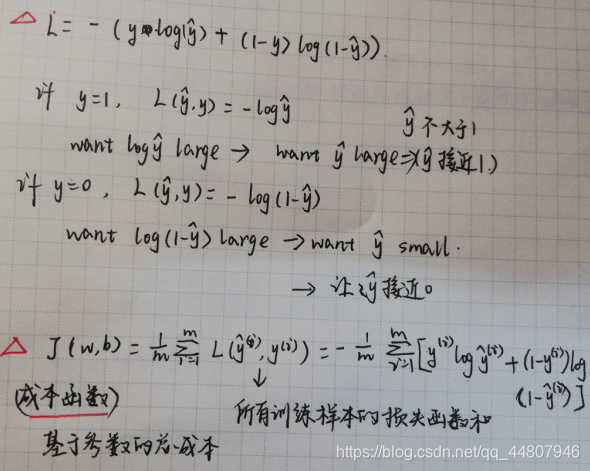 △ L = - (y log(ŷ) + (1-y) log(1-ŷ))
if y=1, L(ŷ,y) = -logŷ
ŷ 不大于1
want logŷ large → want ŷ large ⇒ (ŷ 接近1.)
if y=0, L(ŷ,y) = - log(1-ŷ)
want log(1-ŷ) large → want ŷ small.
→ 让ŷ接近0
△ J(w,b) = 1/m Σ_{i=1}^{m} L(ŷ^{(i)}, y^{(i)}) = - 1/m Σ_{i=1}^{m} [y^{(i)} log ŷ^{(i)} + (1-y^{(i)}) log
(1-ŷ^{(i)})]
(成本函数)
↓
所有训练样本的损失函数和
基于参数的总成本
https://blog.csdn.net/qq_44807946